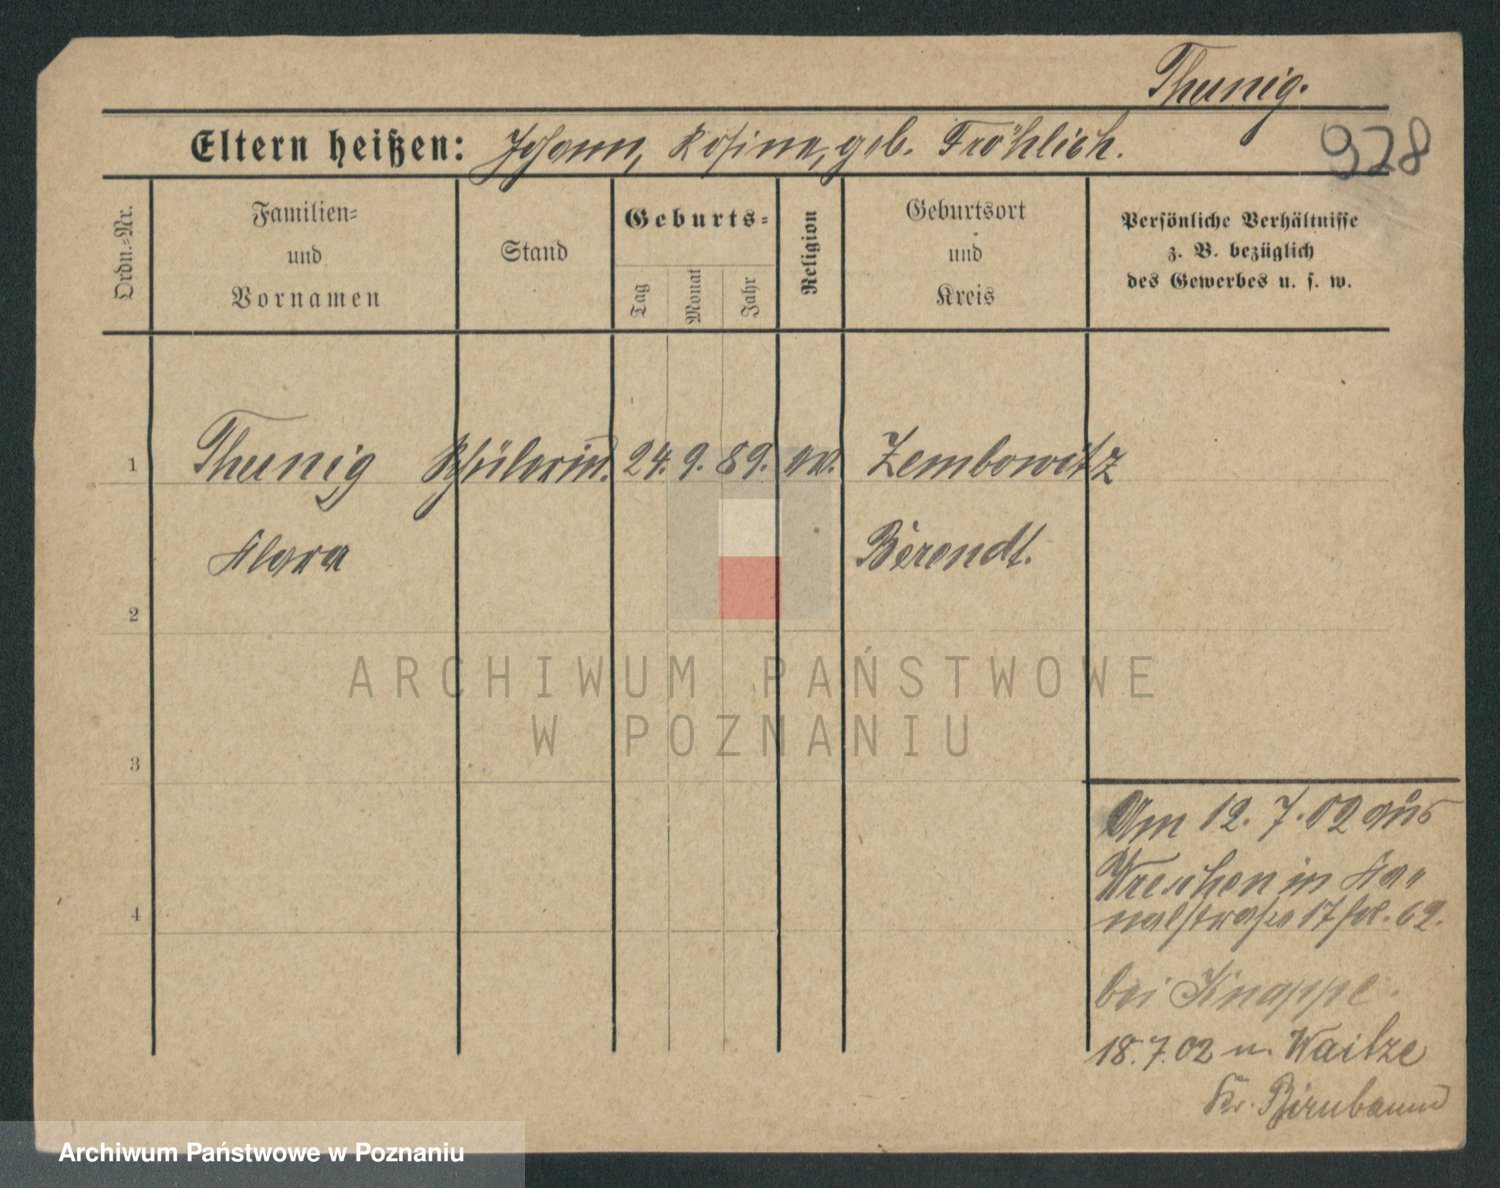 Thunig.
Eltern heißen: Johann, Rosina, geb. Fröhlich.
928
Ordn.=Nr.
Familien=
und
Vornamen
Stand
Geburts=
Tag
Monat
Jahr
Religion
Geburtsort
und
Kreis
Persönliche Verhältnisse
z. B. bezüglich
des Gewerbes u. s. w.
1 Thunig Schülerin. 24. 9. 89. ev. Zembowitz
Klara Berendt.
2
ARCHIWUM PAŃSTWOWE
W POZNANIU
3
Am 12. 7. 02 aus
Wreschen in Ka„
4
nalstraße 17 fol. 69.
bei Knappe.
18. 7. 02 n. Waitze
Kr. Birnbaum
Archiwum Państwowe w Poznaniu